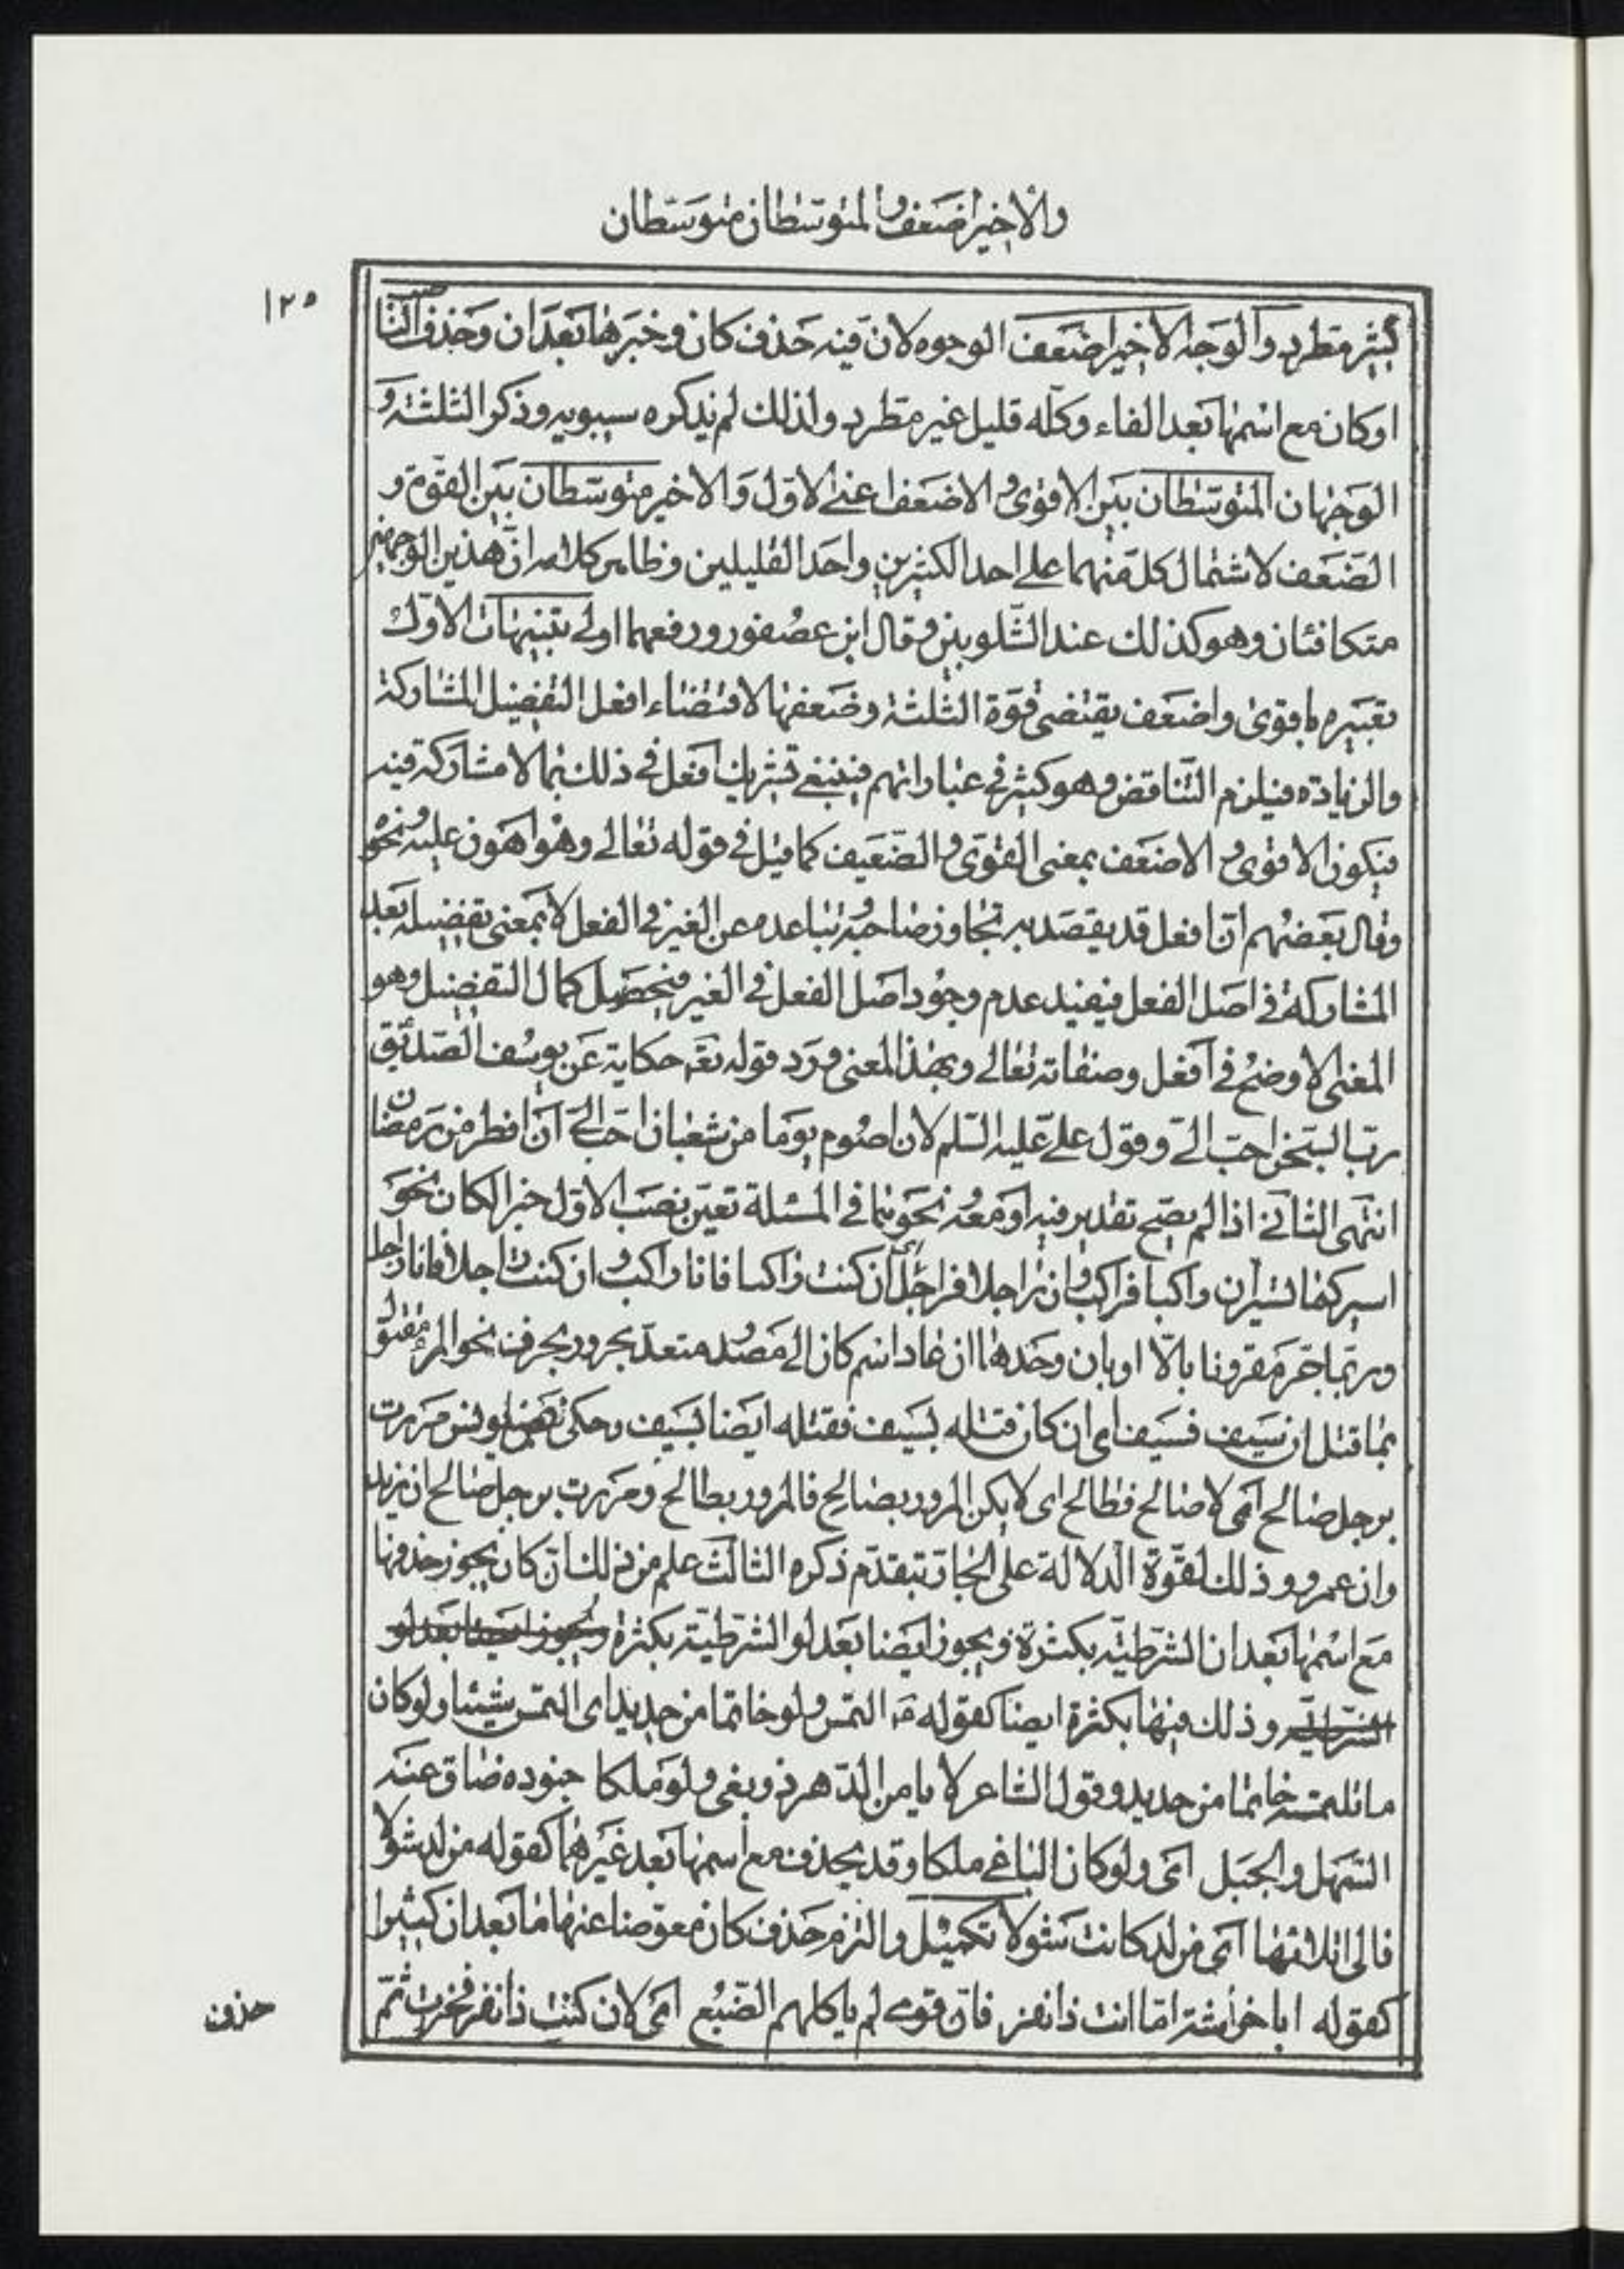 والاخير اضعف والمتوسطان متوسطان
١٢٥
كثير مطرد والوجه الاخير اضعف الوجوه لان فيه حذف كان وخبرها بعد ان وحذف الناصب
او كان مع اسمها بعد الفاء وكله قليل غير مطرد ولذلك لم يذكره سيبويه وذكر الثلثة و
الوجهان المتوسطان بين الاقوى والاضعف اعنى الاول والاخير متوسطان بين القوة و
الضعف لاشتمال كل منهما على احد الكثيرين واحد القليلين وظاهر كلامه ان هذين الوجهين
متكافئان وهو كذلك عند الشلوبين وقال ابن عصفور ورفعهما اولى تنبيهات الاول
تعبيره باقوى واضعف يقتضى قوة الثلثة وضعفها لاقتضاء افعل التفضيل المشاركة
والزيادة فيلزم التناقض وهو كثير فى عباراتهم فينبغى تشريك افعل فى ذلك بما لا مشاركة فيه
فيكون الاقوى والاضعف بمعنى القوى والضعيف كما قيل فى قوله تعالى وهو اهون عليه ونحوه
وقال بعضهم ان افعل قد يقصد به تجاوز صاحبه وتباعده عن الغير فى الفعل لا بمعنى تفضيله بعد
المشاركة فى اصل الفعل فيفيد عدم وجود اصل الفعل فى الغير فيحصل كمال التفضيل وهو
المعنى الاوضح فى افعل وصفاته تعالى وبهذا المعنى ورد قوله تعه حكاية عن يوسف الصديق
رب السجن احب الى وقول على عليه السلم لان اصوم يوما من شعبان احب الى ان افطر من رمضان
انتهى الثانى اذا لم يصح تقدير فيه او معه نحو بما فى المسئلة تعين نصب الاول خبرا لكان نحو
اسير كما تسير ان راكبا فراكب وان راجلا فراجل اى ان كنت راكبا فانا راكب وان كنت راجلا فانا راجل
وربما جر مقرونا بالا او بان وحدها ان عاد اسم كان الى مصدر متعد بحرف نحو المرء مقتول
بما قتل ان سيف فسيف اى ان كان قتله بسيف فقتله ايضا بسيف وحكى يونس مررت
برجل صالح اى لا صالح فطالح اى لا يكن المرور بصالح فالمرور بطالح ومررت برجل صالح ان زيد
وان عمرو وذلك لقوة الدلالة على الجار بتقدم ذكره الثالث علم من ذلك ان كان يجوز حذفها
مع اسمها بعد ان الشرطية بكثرة ويجوز ايضا بعد لو الشرطية بكثرة ويجوز ايضا بعد لو
الشرطية وذلك فيها بكثرة ايضا كقوله التمس ولو خاتما من حديد اى التمس شيئا ولو كان
ما تلتمسه خاتما من حديد وقول الشاعر لا يامن الدهر ذو بغى ولو ملكا جنوده ضاق عنه
السهل والجبل اى ولو كان الباغى ملكا وقد يحذف مع اسمها بعد غيرهما كقوله من لد شولا
فالى اتلائها اى من لد كانت شولا تكميل والتزم حذف كان معوضا عنها ما بعد ان كثيرا
كقوله ابا خراشة اما انت ذا نفر فان قومى لم ياكلهم الضبع اى لان كنت ذا نفر فخرت ثم
حذف